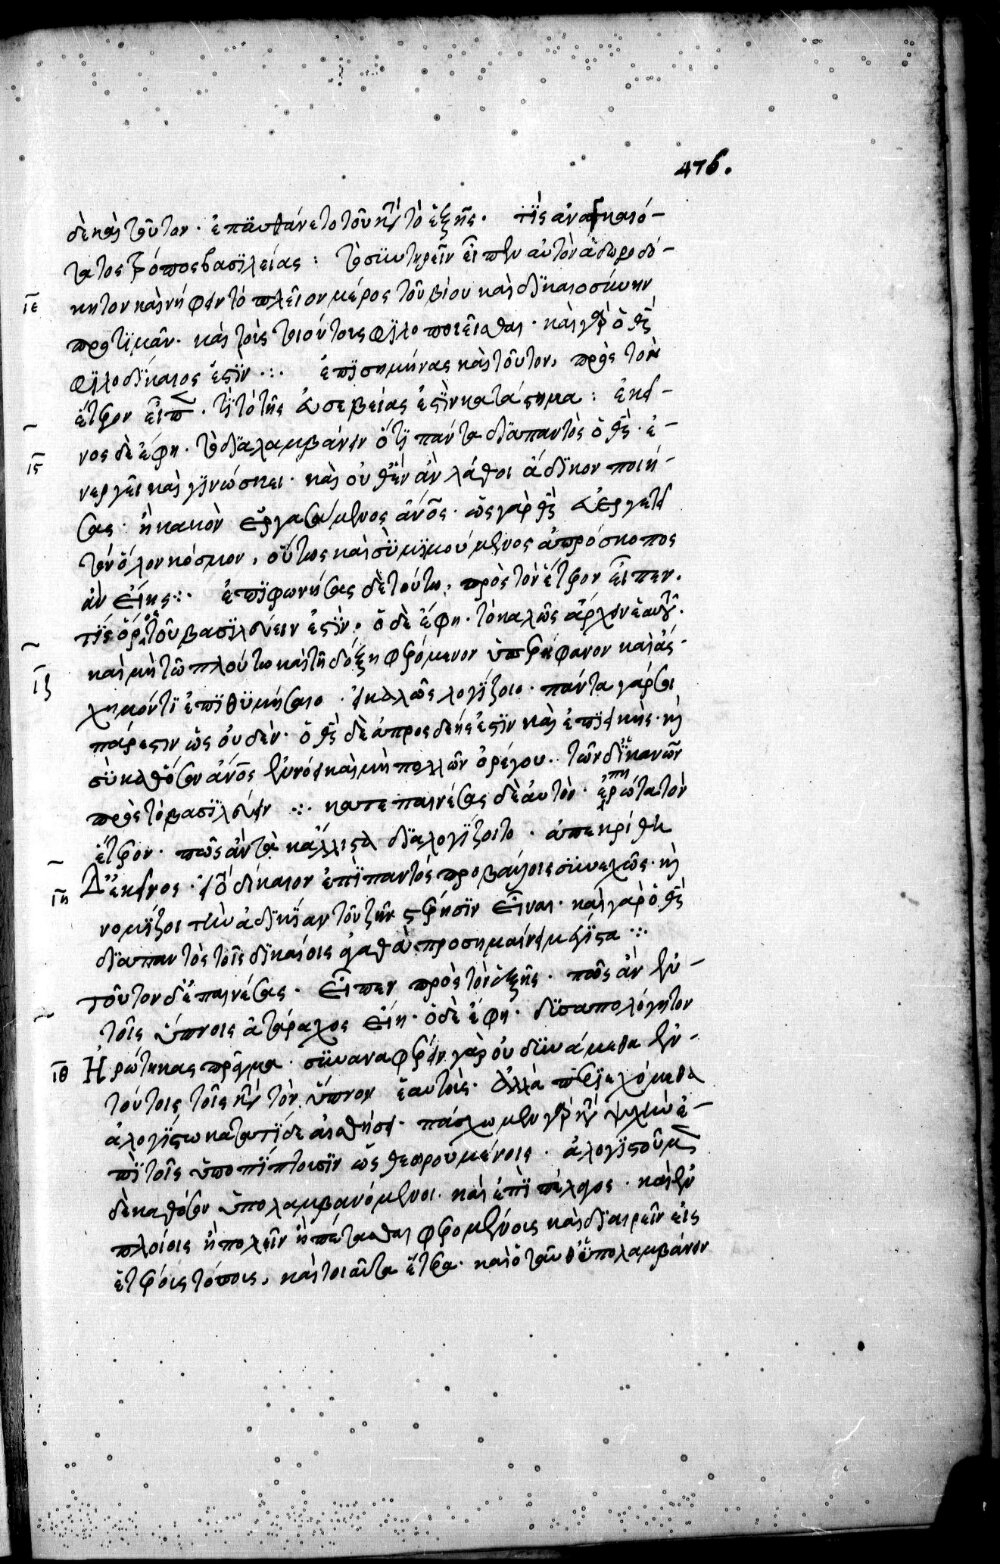 476.
δὲ καὶ τοῦτον· ἐπϋνθάνετο τοῦ κτ̀ τὸ ἑξῆς· τίς ἀναγκαιό-
τατος τρόπος βασιλείας : τὸ συντηρεῖν εἶπεν αὑτὸν ἀδωροδό-
ιε κητον καὶ νήφειν τὸ πλεῖον μέρος τοῦ βίου καὶ δικαιοσύνην
προτιμᾶν· καὶ τοὺς τοιούτους φιλοποιεῖσθαι· καὶ γὰρ ὁ θς̄
φιλοδίκαιος ἐστϊν ·:· ἐπισημήνας καὶ τοῦτον, πρὸς τὸν
ἕτερον εἶπ· τί τὸ τῆς εὐσεβείας ἐστὶν κατάστημα : ἐκεῖ-
ιϛ νος δὲ ἔφη· τὸ διαλαμβάνειν ὅτι πάντα διαπαντὸς ὁ θς̄· ἐ-
νεργεῖ καὶ γινώσκει· καὶ οὐθὲν ἂν λάθοι ἄδικον ποιή-
σας· ἢ κακὸν ἐργασάμενος ἄνος̄· ὡς γὰρ θς̄ εὐεργετεῖ
τὸν ὅλον κόσμον, οὕτως καὶ σὺ μιμούμενος ἀπρόσκοπος
ἂν εἴης ·:· ἐπιφωνήσας δὲ τούτω, πρὸς τὸν ἕτερον εἶπεν·
τίς ὅρος τοῦ βασιλεύειν ἐστὶν· ὁ δὲ ἔφη· τὸ καλῶς ἄρχειν ἑαυτοῦ·
ιζ καὶ μὴ τῶ πλούτω καὶ τῆ δόξη φερόμενον ὑπερήφανον καὶ ἄσ-
χημόν τι ἐπιθυμήσαιο· εἰ καλῶς λογίζοιο· πάντα γάρ σοι
πάρεστιν ὡς οὐδὲν· ὁ θς̄ δὲ ἀπροσδεής ἐστιν καὶ ἐπιεικής· κὶ
σὺ καθόσον ἄνος̄ ἐννόει καὶ μὴ πολλῶν ὀρέγου. τῶν δὲ ἱκανῶν
πρὸς τὸ βασιλεύειν ·:· κατεπαινέσας δὲ αὐτὸν· ἐπηρώτα τὸν
ἕτερον· πῶς ἂν τὰ κάλλιστα διαλογίζοιτο· ἀπεκρίθη
ιη Δ'ἐκεῖνος· εἰ τὸ δίκαιον ἐπὶ παντὸς προβάλλοι συνεχῶς· κὶ
νομίζοι τὴν ἀδικίαν τοῦ ζῆν στέρησιν εἶναι· καὶ γὰρ ὁ θς̄
διαπαντὸς τοῖς δικαίοις ἀγαθὰ προσημαίνει μέγιστα ·:·
τοῦτον δ'ἐπαινέσας· εἶπεν πρὸς τὸν ἑξῆς· πῶς ἂν ἐν
τοῖς ὕπνοις ἀτάραχος εἴη· ὁ δὲ ἔφη· δυσαπολόγητον
ιθ Ἠρώτηκας πρᾶγμα· συναναφέρειν γὰρ οὐ δυνάμεθα ἐν
τούτοις τοῖς κτ̀ τὸν ὕπνον ἑαυτοὺς· ἀλλὰ περιεχόμεθα
ἀλογίστω κατὰ τάδε αἰσθήσει· πάσχομεν γὰρ κτ̀ ψυχὴν ἐ-
πὶ τοῖς ὑποπίπτουσιν ὡς θεωρουμένοις· ἀλογιστοῦμεν
δὲ καθόσον ὑπολαμβανόμενοι· καὶ ἐπὶ πέλαγος· καὶ ἐν
πλοίοις ἢ πολεῖν ἢ πέτασθαι φερομένους καὶ διαιρεῖν εἰς
ἑτέρους τόπους, καὶ τοιαῦτα ἕτερα· καὶ ὁ ταῦθ'ὑπολαμβάνων